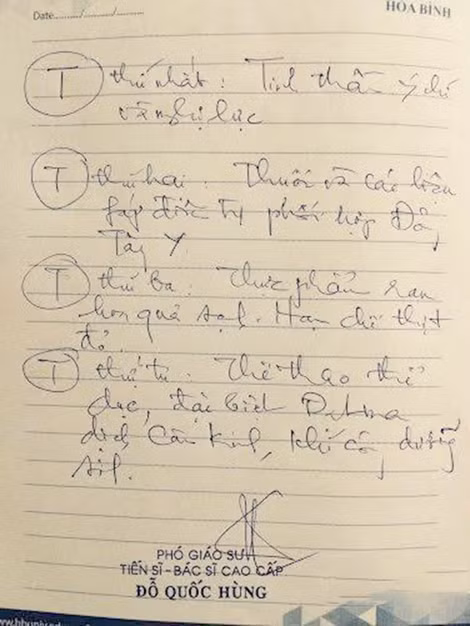 Date............/............/............
HÒA BÌNH
T thứ nhất : Tinh thần ý chí
và nghị lực
T thứ hai : Thuốc và các biện
pháp điều trị phối hợp Đông
Tây Y
T thứ ba : Thực phẩm rau
hoa quả sạch. Hạn chế thịt
đỏ.
T thứ tư : Thể thao thể
dục, đặc biệt
dịch Cân Kinh, khí công dưỡng
sinh.
PHÓ GIÁO SƯ
TIẾN SĨ - BÁC SĨ CAO CẤP
ĐỖ QUỐC HÙNG